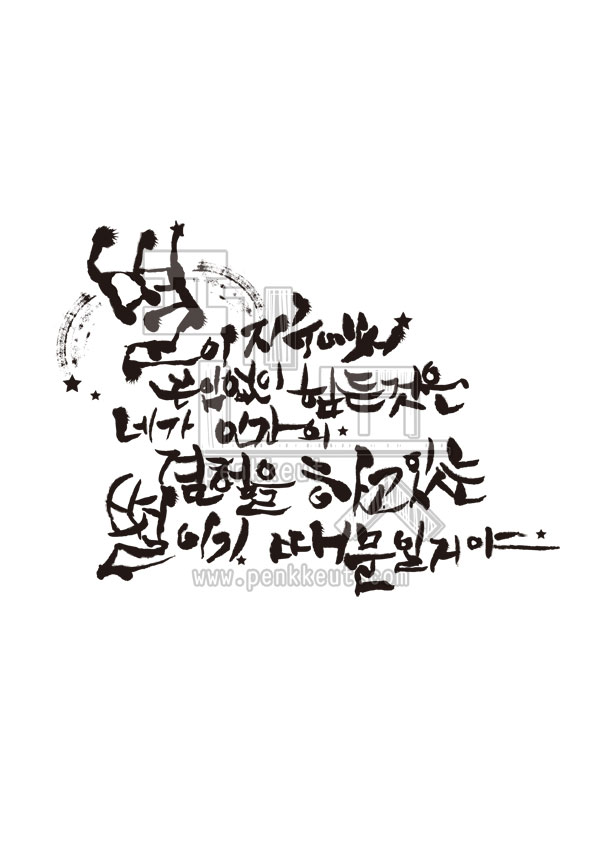 별아 지구에서
끊임없이 힘든것은
네가 인간의
경험을 하고있는
별이기 때문일거야
penkkeut
www.penkkeut.com